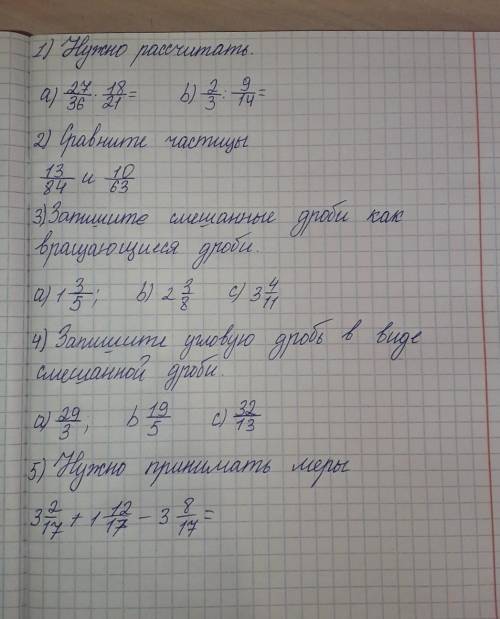 1) Нужно рассчитать.
a) 27/36 · 18/21 = b) 2/3 : 9/14 =
2) Сравните частицы
13/84 и 10/63
3) Запишите смешанные дроби как
вращающиеся дроби.
a) 1 3/5; b) 2 3/8 c) 3 4/11
4) Запишите угловую дробь в виде
смешанной драби.
a) 29/3; b 19/5 c) 32/13
5) Нужно принимать меры
3 2/17 + 1 12/17 - 3 8/17 =